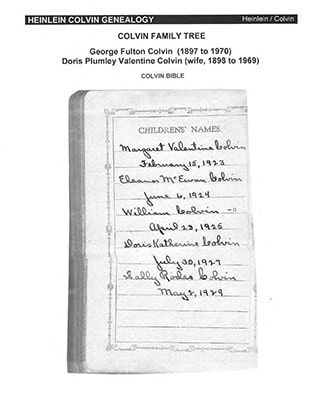 HEINLEIN COLVIN GENEALOGY Heinlein / Colvin
COLVIN FAMILY TREE
George Fulton Colvin (1897 to 1970)
Doris Plumley Valentine Colvin (wife, 1898 to 1969)
COLVIN BIBLE
CHILDRENS' NAMES.
Margaret Valentine Colvin
February 15, 1923
Eleanor McEwan Colvin
June 6, 1924
William Colvin
April 23, 1925
Doris Katherine Colvin
July 30, 1927
Sally Rodes Colvin
May 2, 1929